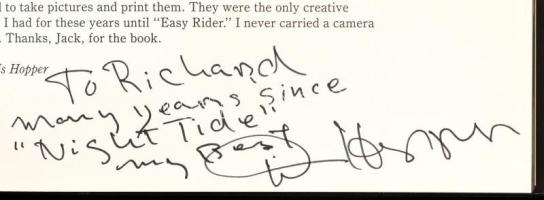 d to take pictures and print them. They were the only creative
I had for these years until "Easy Rider." I never carried a camera
. Thanks, Jack, for the book.
s Hopper
To Richard
many years since
"Night Tide"
my Best
Hopper